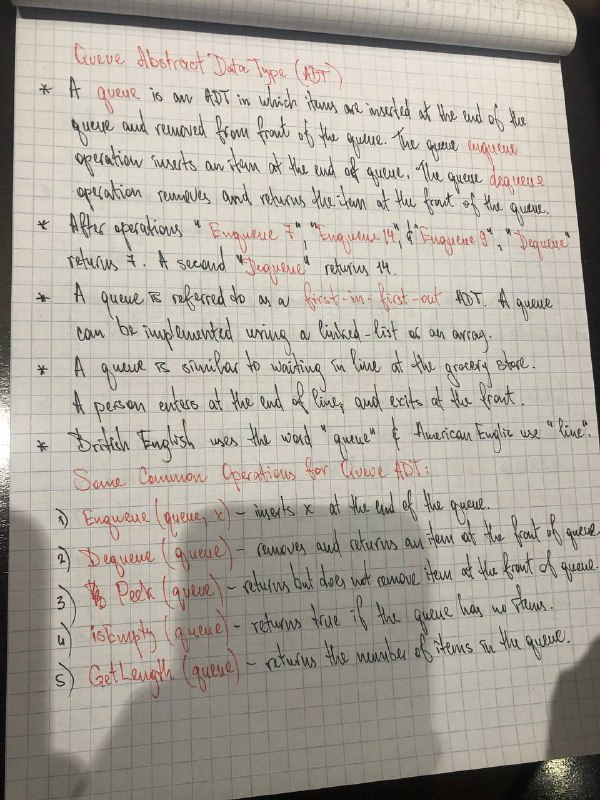 Queue Abstract Data Type (ADT)
* A queue is an ADT in which items are inserted at the end of the
queue and removed from front of the queue. The queue enqueue
operation inserts an item at the end of queue. The queue dequeue
operation removes and returns the item at the front of the queue.
* After operations "Enqueue 7", "Enqueue 14", & "Enqueue 9", "Dequeue"
returns 7. A second "Dequeue" returns 14.
* A queue is referred to as a first-in-first-out ADT. A queue
can be implemented using a linked-list or an array.
* A queue is similar to waiting in line at the grocery store.
A person enters at the end of line, and exits at the front.
* British English uses the word "queue" & American Englis use "line".
Some Common Operations for Queue ADT:
1) Enqueue (queue, x) - inserts x at the end of the queue.
2) Dequeue (queue) - removes and returns an item at the front of queue
3) Peek (queue) - returns but does not remove item at the front of queue.
4) isEmpty (queue) - returns true if the queue has no items.
5) GetLength (queue) - returns the number of items in the queue.